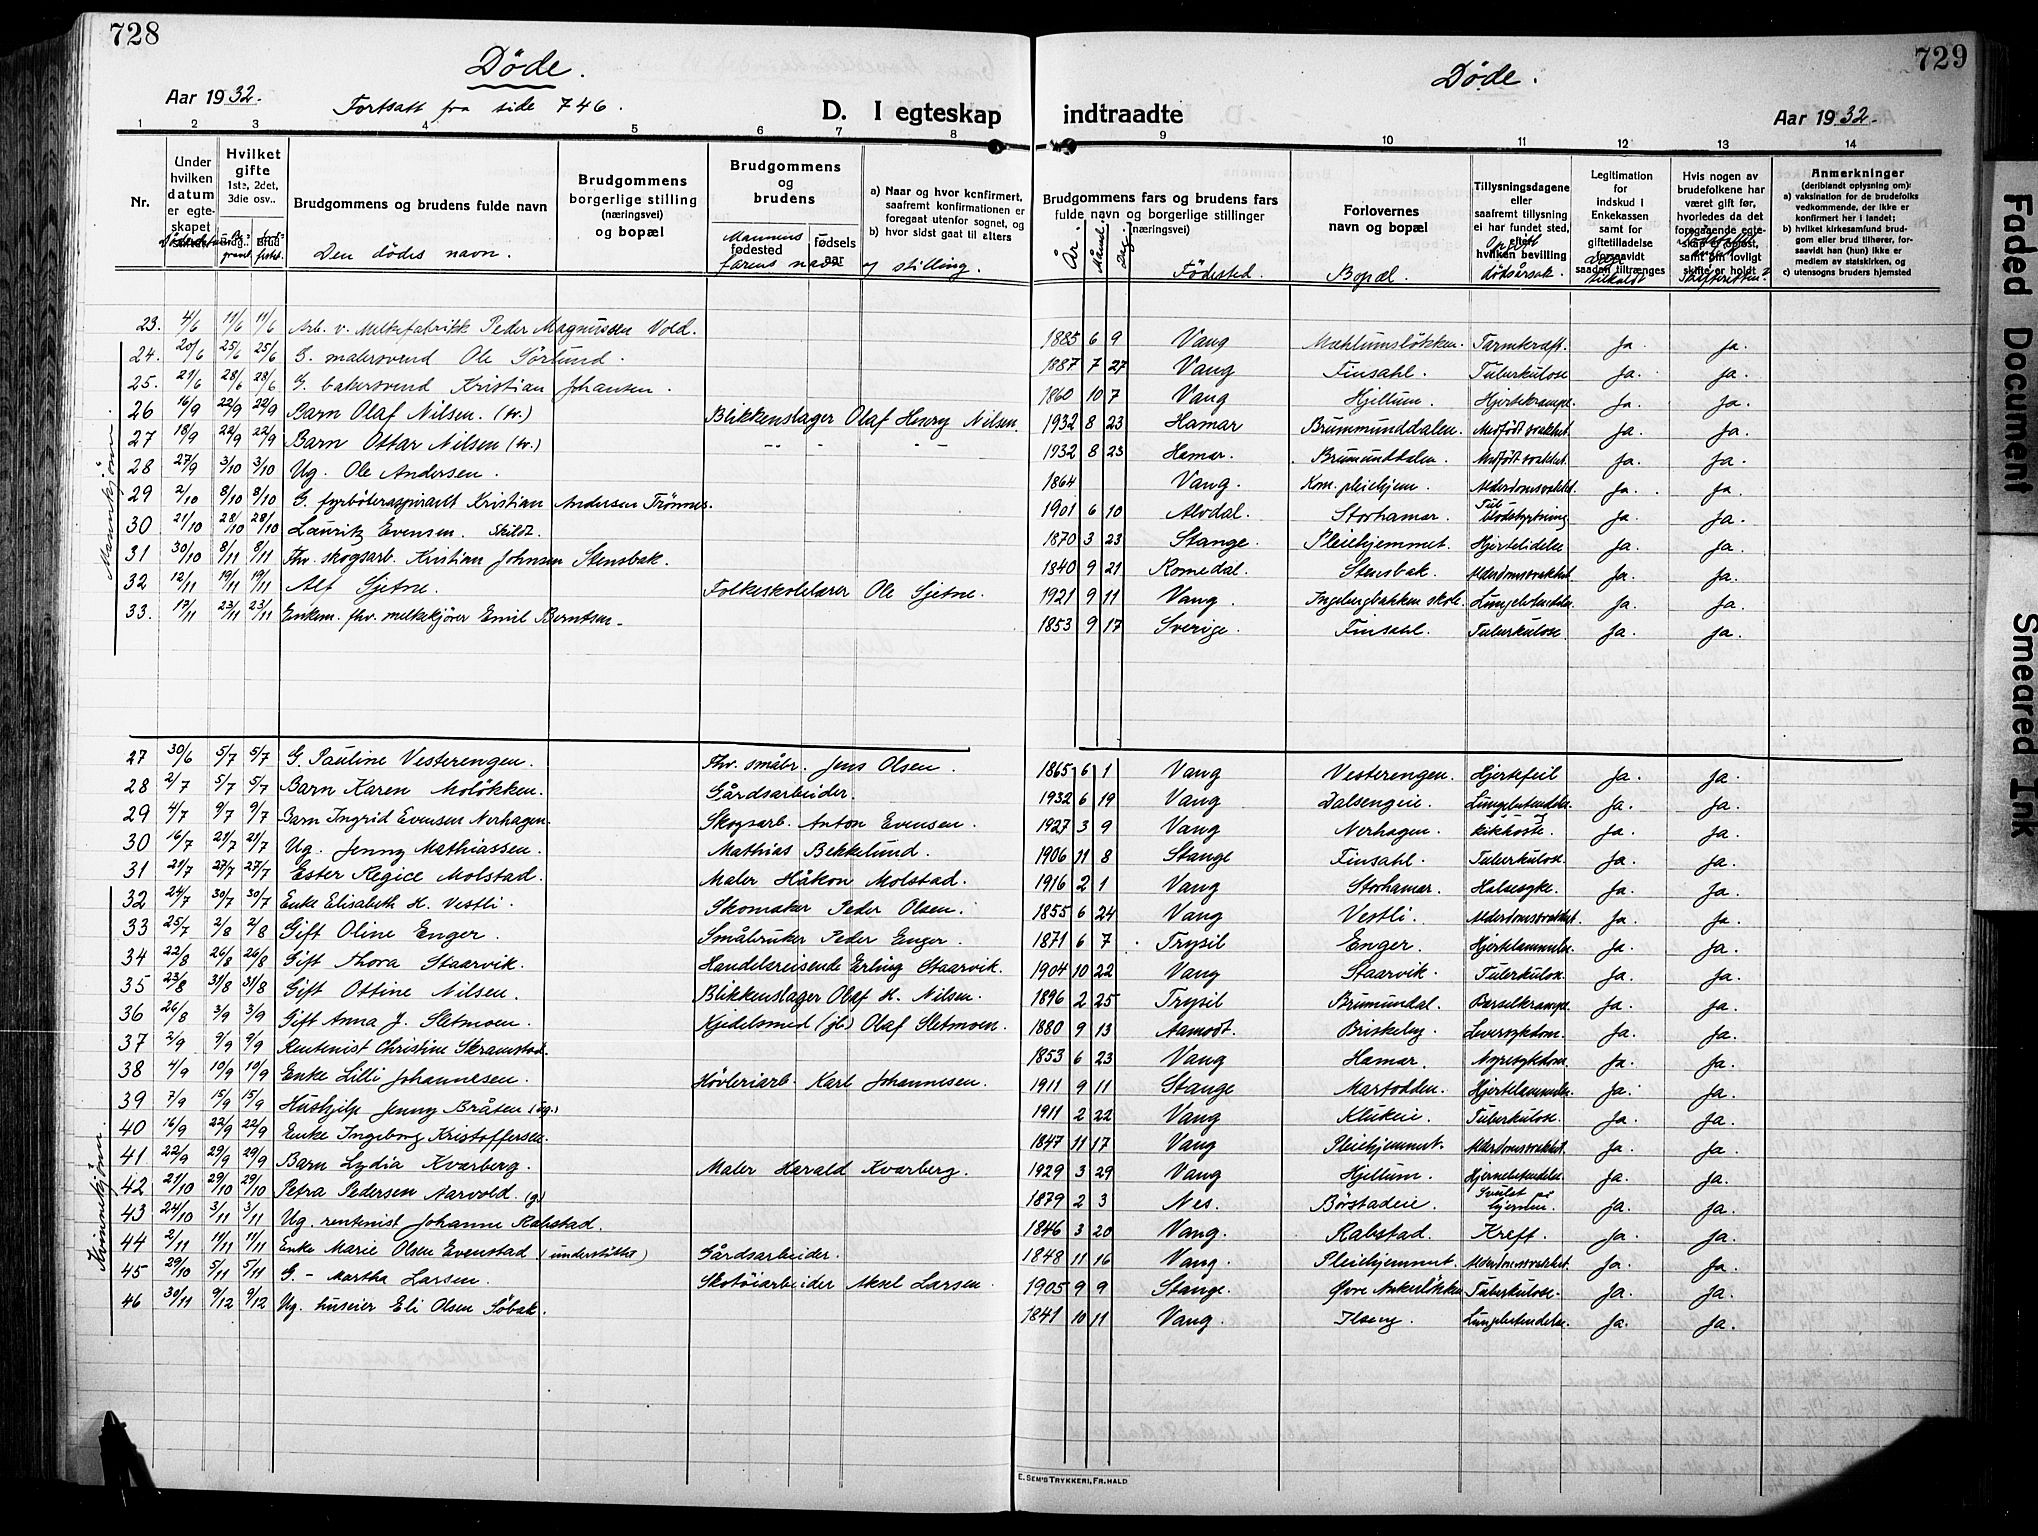 728
729
Døde.
Døde.
Aar 1932.
Fortsatt fra side 746.
D. I egteskap indtraadte
Aar 1932.
1 2 3 4 5 6 7 8 9 10 11 12 13 14
Nr.
Under hvilken datum er egteskapet
Dødsdatum
Hvilket gifte 1ste, 2det, 3die osv..
Brudg. Brud
Brudgommens og brudens fulde navn
Den dødes navn.
Brudgommens borgerlige stilling (næringsvei) og bopæl
Brudgommens og brudens
fødested
fødsels aar
Mannens farens navn og stilling.
a) Naar og hvor konfirmert, saafremt konfirmationen er foregaat utenfor sognet, og
b) hvor sidst gaat til alters
Brudgommens fars og brudens fars fulde navn og borgerlige stillinger (næringsvei)
År. Måned Dag
Fødested.
Forlovernes navn og bopæl
Bopæl.
Tillysningsdagene eller saafremt tillysning ei har fundet sted, efter hvilken bevilling
Opgitt dødsårsak.
Legitimation for indskud i Enkekassen samt for giftetilladelse forsaavidt saadan tiltrænges
Læge tilkaldt
Hvis nogen av brudefolkene har været gift før, hvorledes da det foregaaende egteskap er opløst, samt om lovlig skifte er holdt
Skifteretten?
Anmerkninger
(deriblandt oplysning om):
a) vaksination for de brudefolks vedkommende, der ikke er konfirmert her i landet;
b) hvilket kirkesamfund brudgom eller brud tilhører, forsaavidt han (hun) ikke er medlem av statskirken, og
c) utensogns bruders hjemsted
Mannkjønn.
23. 4/6 11/6 11/6 Arb. v. melkefabrikk Peder Magnussen Vold. 1885 6 9 Vang Mæhlumsløkken. Tarmkræft. Ja. Ja.
24. 20/6 25/6 25/6 G. malersvend Ole Sørlund. 1887 7 27 Vang Finsahl. Tuberkulose Ja. Ja.
25. 21/6 28/6 28/6 G. bakersvend Kristian Johansen. 1860 10 7 Vang Hjellum. Hjertekrampe Ja. Ja.
26 16/9 22/9 22/9 Barn Olaf Nilsen. (tv.) Blikkenslager Olaf Henry Nilsen. 1932 8 23 Hamar Brummunddalen. Medfødt svakhet. Ja. Ja.
27 18/9 22/9 22/9 Barn Ottar Nilsen (tv.) -"- - -"- 1932 8 23 Hamar. Brumunddalen. Medfødt svakhet. Ja. Ja.
28 27/9 3/10 3/10 Ug. Ole Andersen. 1864 Vang. Kom. pleiehjem. Alderdomssvakhet. Ja. Ja.
29 2/10 8/10 8/10 G. fyrbøteraspirant Kristian Andersen Trømnes. 1901 6 10 Alvdal. Storhamar. Tub. blodstyrtning Ja. Ja.
30 21/10 28/10 28/10 Lauritz Evensen. Skildt. 1870 3 23 Stange. Pleiehjemmet. Hjertelidelse Ja. Ja.
31 30/10 8/11 8/11 Fhv. skogsarb. Kristian Johnsen Stensbak. 1840 9 21 Romedal. Stensbak. Alderdomssvakhet Ja. Ja.
32 12/11 19/11 19/11 Alf Sjetne. Folkeskolelærer Ole Sjetne. 1921 9 11 Vang. Ingebergbakken skole. Lungebetendelse. Ja. Ja.
33. 17/11 23/11 23/11 Enkem. fhv. melkekjører Emil Berntsen. 1853 9 17 Sverige. Finsahl. Tuberkulose Ja. Ja.
Kvinnekjønn.
27 30/6 5/7 5/7 G. Pauline Vesterengen. Fhv. småbr. Jens Olsen. 1865 6 1 Vang Vesterengen. Hjertefeil Ja. Ja.
28 2/7 5/7 5/7 Barn Karen Moløkken. Gårdsarbeider. 1932 6 19 Vang Dalsengeie. Lungebetendelse. Ja. Ja.
29 4/7 9/7 9/7 Barn Ingrid Evensen Nerhagen. Skogsarb. Anton Evensen. 1927 3 9 Vang Nerhagen. kikhoste. Ja. Ja.
30 16/7 21/7 21/7 Ug. Jenny Mathiassen. Mathias Bekkelund. 1906 11 8 Stange Finsahl. Tuberkulose. Ja. Ja.
31 21/7 27/7 27/7 Ester Regice Molstad. Maler Håkon Molstad. 1916 2 1 Vang Storhamar. Halssyke. Ja. Ja.
32 24/7 30/7 30/7 Enke Elisabeth H. Vestli. Skomaker Peder Olsen. 1855 6 24 Vang Vestli. Alderdomssvakhet. Ja. Ja.
33 25/7 2/8 2/8 Gift Oline Enger. Småbruker Peder Enger. 1871 6 7 Trysil Enger. Hjertelammelse. Ja. Ja.
34 22/8 26/8 26/8 Gift Thora Staarvik. Handelsreisende Erling Staarvik. 1904 10 22 Vang Staarvik. Tuberkulose Ja. Ja.
35 23/8 31/8 31/8 Gift Ottine Nilsen. Blikkenslager Olaf H. Nilsen. 1896 2 25 Trysil Brumundal. Barselkrampe. Ja. Ja.
36 26/8 3/9 3/9 Gift Anna J. Sletmoen. Kjedelsmed (jb.) Olaf Sletmoen. 1880 9 13 Aamodt. Briskeby. Leversykdom. Ja. Ja.
37 2/9 9/9 9/9 Rentenist Christine Skramstad. 1853 6 23 Vang Hamar. Nyresykdom Ja. Ja.
38 4/9 10/9 10/9 Enke Lilli Johannesen. Høvleriarb. Karl Johannesen. 1911 9 11 Stange Martodden. Hjertelammelse. Ja. Ja.
39 7/9 15/9 15/9 Hushjelp Jenny Bråten (ug.) 1911 2 22 Vang Klukeie. Tuberkulose. Ja. Ja.
40 16/9 22/9 22/9 Enke Ingeborg Kristoffersen. 1847 11 17 Vang Pleiehjemmet. Alderdomssvakhet. Ja. Ja.
41 22/9 29/9 29/9 Barn Lydia Kvarberg. Maler Harald Kvarberg. 1929 3 29 Vang Hjellum. Hjernebetendelse. Ja. Ja.
42 21/10 29/10 29/10 Petra Pedersen Aarvold. (g.) 1879 2 3 Nes. Børstadeie. Svulst på hjernen. Ja. Ja.
43 24/10 3/11 3/11 Ug. rentenist Johanne Rabstad. 1846 3 20 Vang. Rabstad. Kreft. Ja. Ja.
44 2/11 11/11 11/11 Enke Marie Olsen Evenstad (understøttet) Gårdsarbeider. 1848 11 16 Vang. Pleiehjemmet. Alderdomssvakhet. Ja. Ja.
45 29/10 5/11 5/11 G. - Martha Larsen. Skotøiarbeider Aksel Larsen. 1905 9 9 Stange. Øvre Ankerløkken Tuberkulose. Ja. Ja.
46 30/11 9/12 9/12 Ug. huseier Eli Olsen Søbak. 1841 10 11 Vang. Ilseng. Lungebetendelse. Ja. Ja.
E. SEM'S TRYKKERI, FR.HALD
Faded Document
Smeared Ink